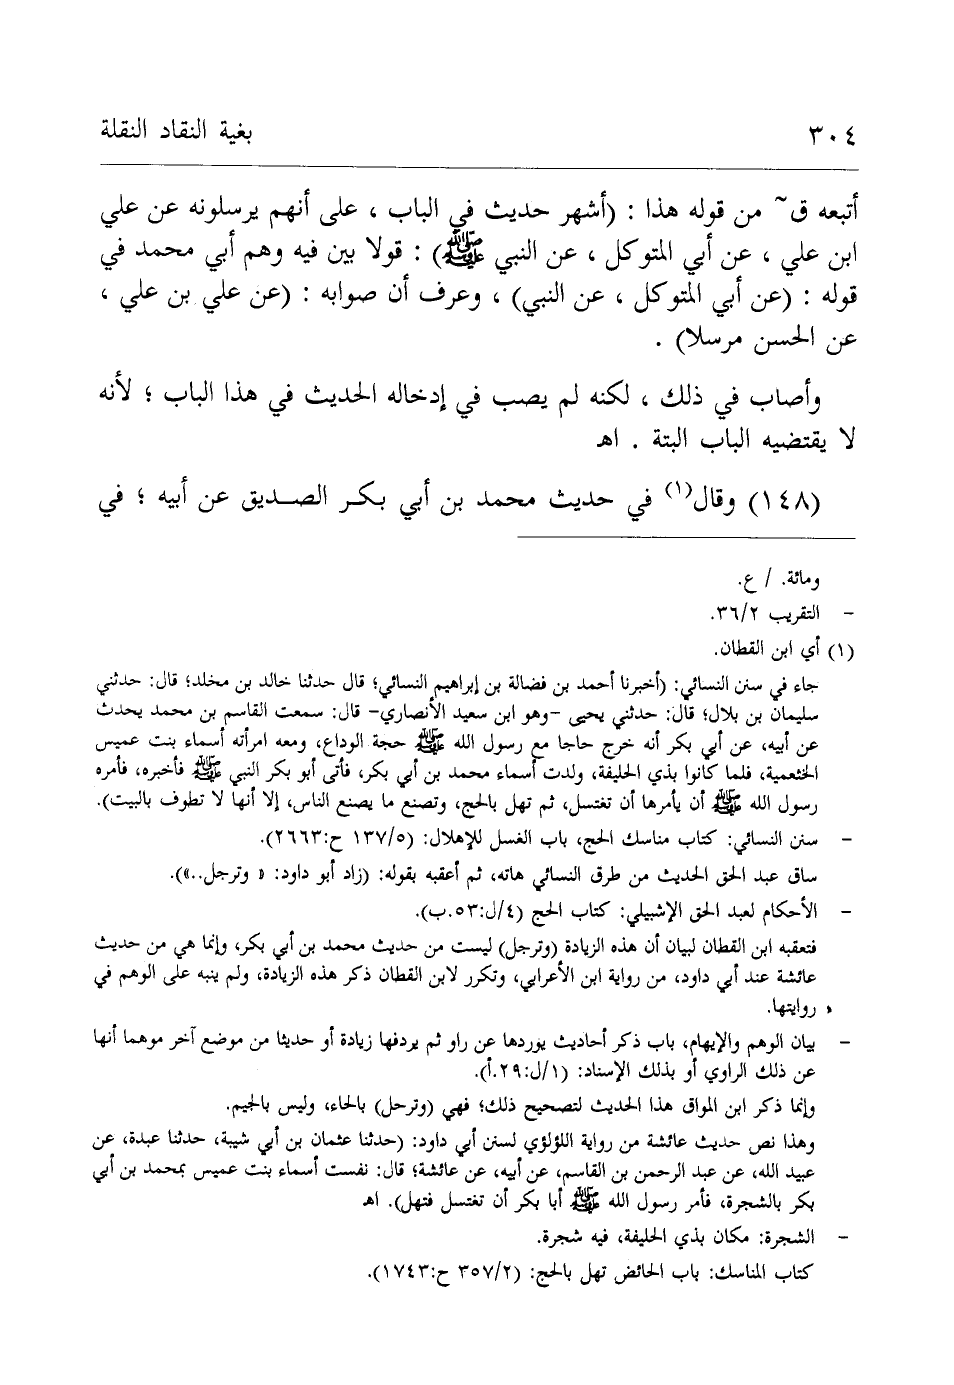 ٣٠٤ بغية النقاد النقلة
أتبعه ق~ من قوله هذا : (أشهر حديث في الباب ، على أنهم يرسلونه عن علي
ابن علي ، عن أبي المتوكل ، عن النبي ﷺ) : قولا بين فيه وهم أبي محمد في
قوله : (عن أبي المتوكل ، عن النبي) ، وعرف أن صوابه : (عن علي بن علي ،
عن الحسن مرسلا) .
وأصاب في ذلك ، لكنه لم يصب في إدخاله الحديث في هذا الباب ؛ لأنه
لا يقتضيه الباب البتة . اهـ
(١٤٨) وقال(١) في حديث محمد بن أبي بكر الصديق عن أبيه ؛ في
ومائة. / ع.
- التقريب ٣٦/٢.
(١) أي ابن القطان.
جاء في سنن النسائي: (أخبرنا أحمد بن فضالة بن إبراهيم النسائي؛ قال حدثنا خالد بن مخلد؛ قال: حدثني
سليمان بن بلال؛ قال: حدثني يحيى -وهو ابن سعيد الأنصاري- قال: سمعت القاسم بن محمد يحدث
عن أبيه، عن أبي بكر أنه خرج حاجا مع رسول الله ﷺ حجة الوداع، ومعه امرأته أسماء بنت عميس
الخثعمية، فلما كانوا بذي الحليفة، ولدت أسماء محمد بن أبي بكر، فأتى أبو بكر النبي ﷺ فأخبره، فأمره
رسول الله ﷺ أن يأمرها أن تغتسل، ثم تهل بالحج، وتصنع ما يصنع الناس، إلا أنها لا تطوف بالبيت).
- سنن النسائي: كتاب مناسك الحج، باب الغسل للإهلال: (١٣٧/٥ ح:٢٦٦٣).
ساق عبد الحق الحديث من طرق النسائي هاته، ثم أعقبه بقوله: (زاد أبو داود: « وترجل..»).
- الأحكام لعبد الحق الإشبيلي: كتاب الحج (٤/ل:٥٣.ب).
فتعقبه ابن القطان لبيان أن هذه الزيادة (وترجل) ليست من حديث محمد بن أبي بكر، وإنما هي من حديث
عائشة عند أبي داود، من رواية ابن الأعرابي، وتكرر لابن القطان ذكر هذه الزيادة، ولم ينبه على الوهم في
روايتها.
- بيان الوهم والإيهام، باب ذكر أحاديث يوردها عن راو ثم يردفها زيادة أو حديثا من موضع آخر موهما أنها
عن ذلك الراوي أو بذلك الإسناد: (١/ل:٢٩.أ).
وإنما ذكر ابن المواق هذا الحديث لتصحيح ذلك؛ فهي (وترحل) بالحاء، وليس بالجيم.
وهذا نص حديث عائشة من رواية اللؤلؤي لسنن أبي داود: (حدثنا عثمان بن أبي شيبة، حدثنا عبدة، عن
عبيد الله، عن عبد الرحمن بن القاسم، عن أبيه، عن عائشة؛ قال: نفست أسماء بنت عميس بمحمد بن أبي
بكر بالشجرة، فأمر رسول الله ﷺ أبا بكر أن تغتسل فتهل). اهـ
- الشجرة: مكان بذي الحليفة، فيه شجرة.
كتاب المناسك: باب الحائض تهل بالحج: (٣٥٧/٢ ح:١٧٤٣).